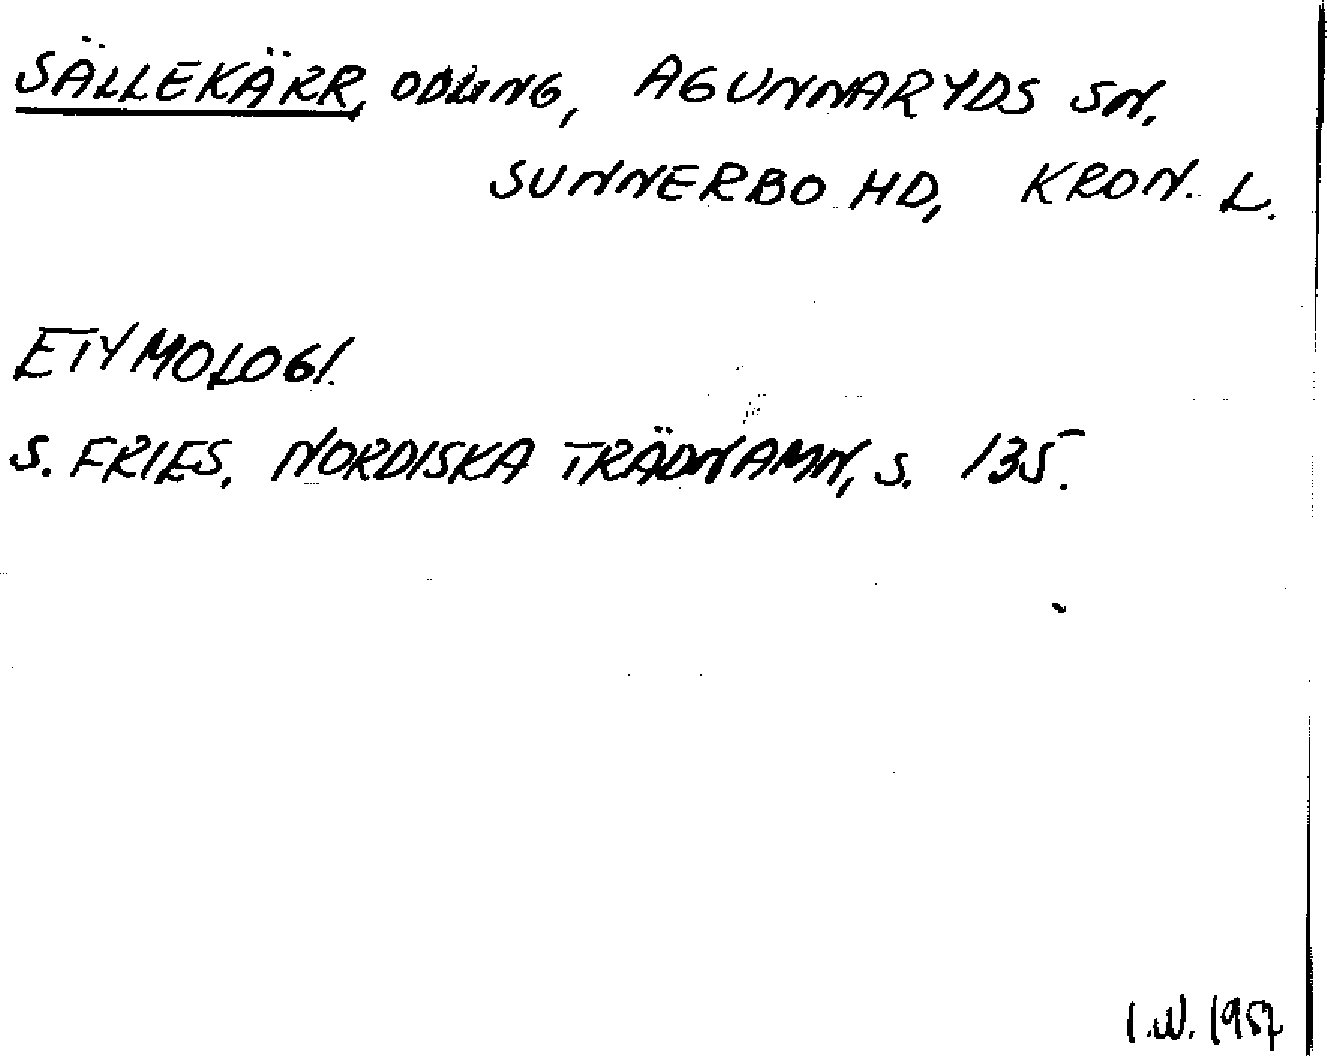 SÄLLEKÄRR, ODLING, AGUNNARYDS SN.
SUNNERBO HD, KRON. L.
ETYMOLOGI.
S. FRIES, NORDISKA TRÄDNAMN, S. 135.
I.W. 1957